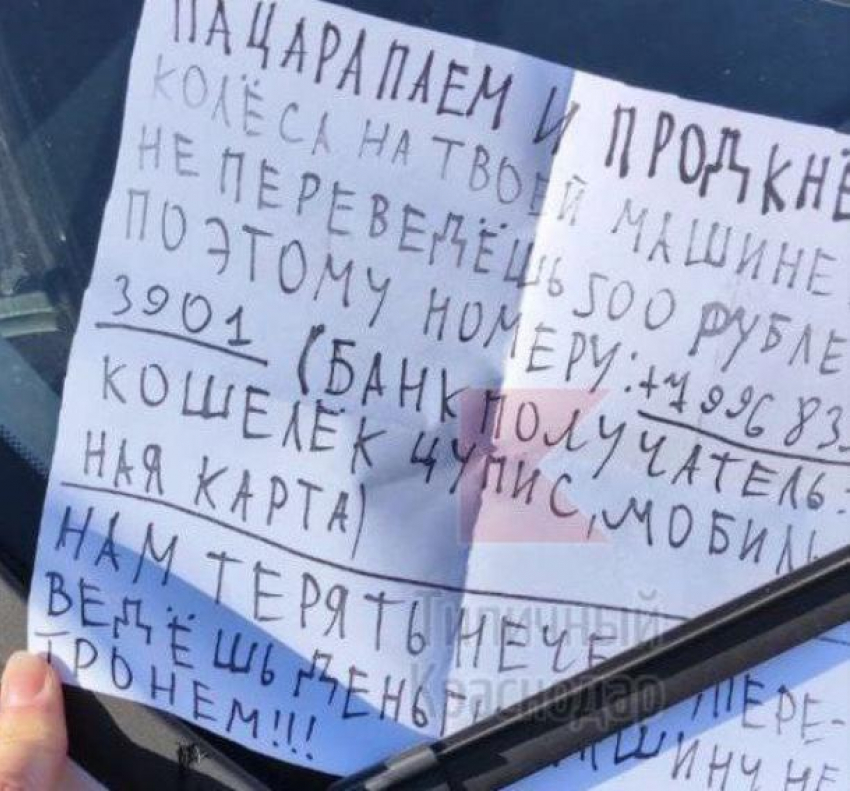 ПАЦАРАПАЕМ И ПРОДКНЁ
КОЛЁСА НА ТВОЕЙ МАШИНЕ
НЕ ПЕРЕВЕДЁШЬ 500 РУБЛЕ
ПО ЭТОМУ НОМЕРУ: +7 996 83
3901 (БАНК ПОЛУЧАТЕЛЬ:
КОШЕЛЁК ЦУПИС, МОБИЛЬ
НАЯ КАРТА)
НАМ ТЕРЯТЬ НЕЧЕ
ПЕРЕ-
ВЕДЁШЬ ДЕНЬ
НЕ
ТРОНЕМ!!!
Типичный
Краснодар